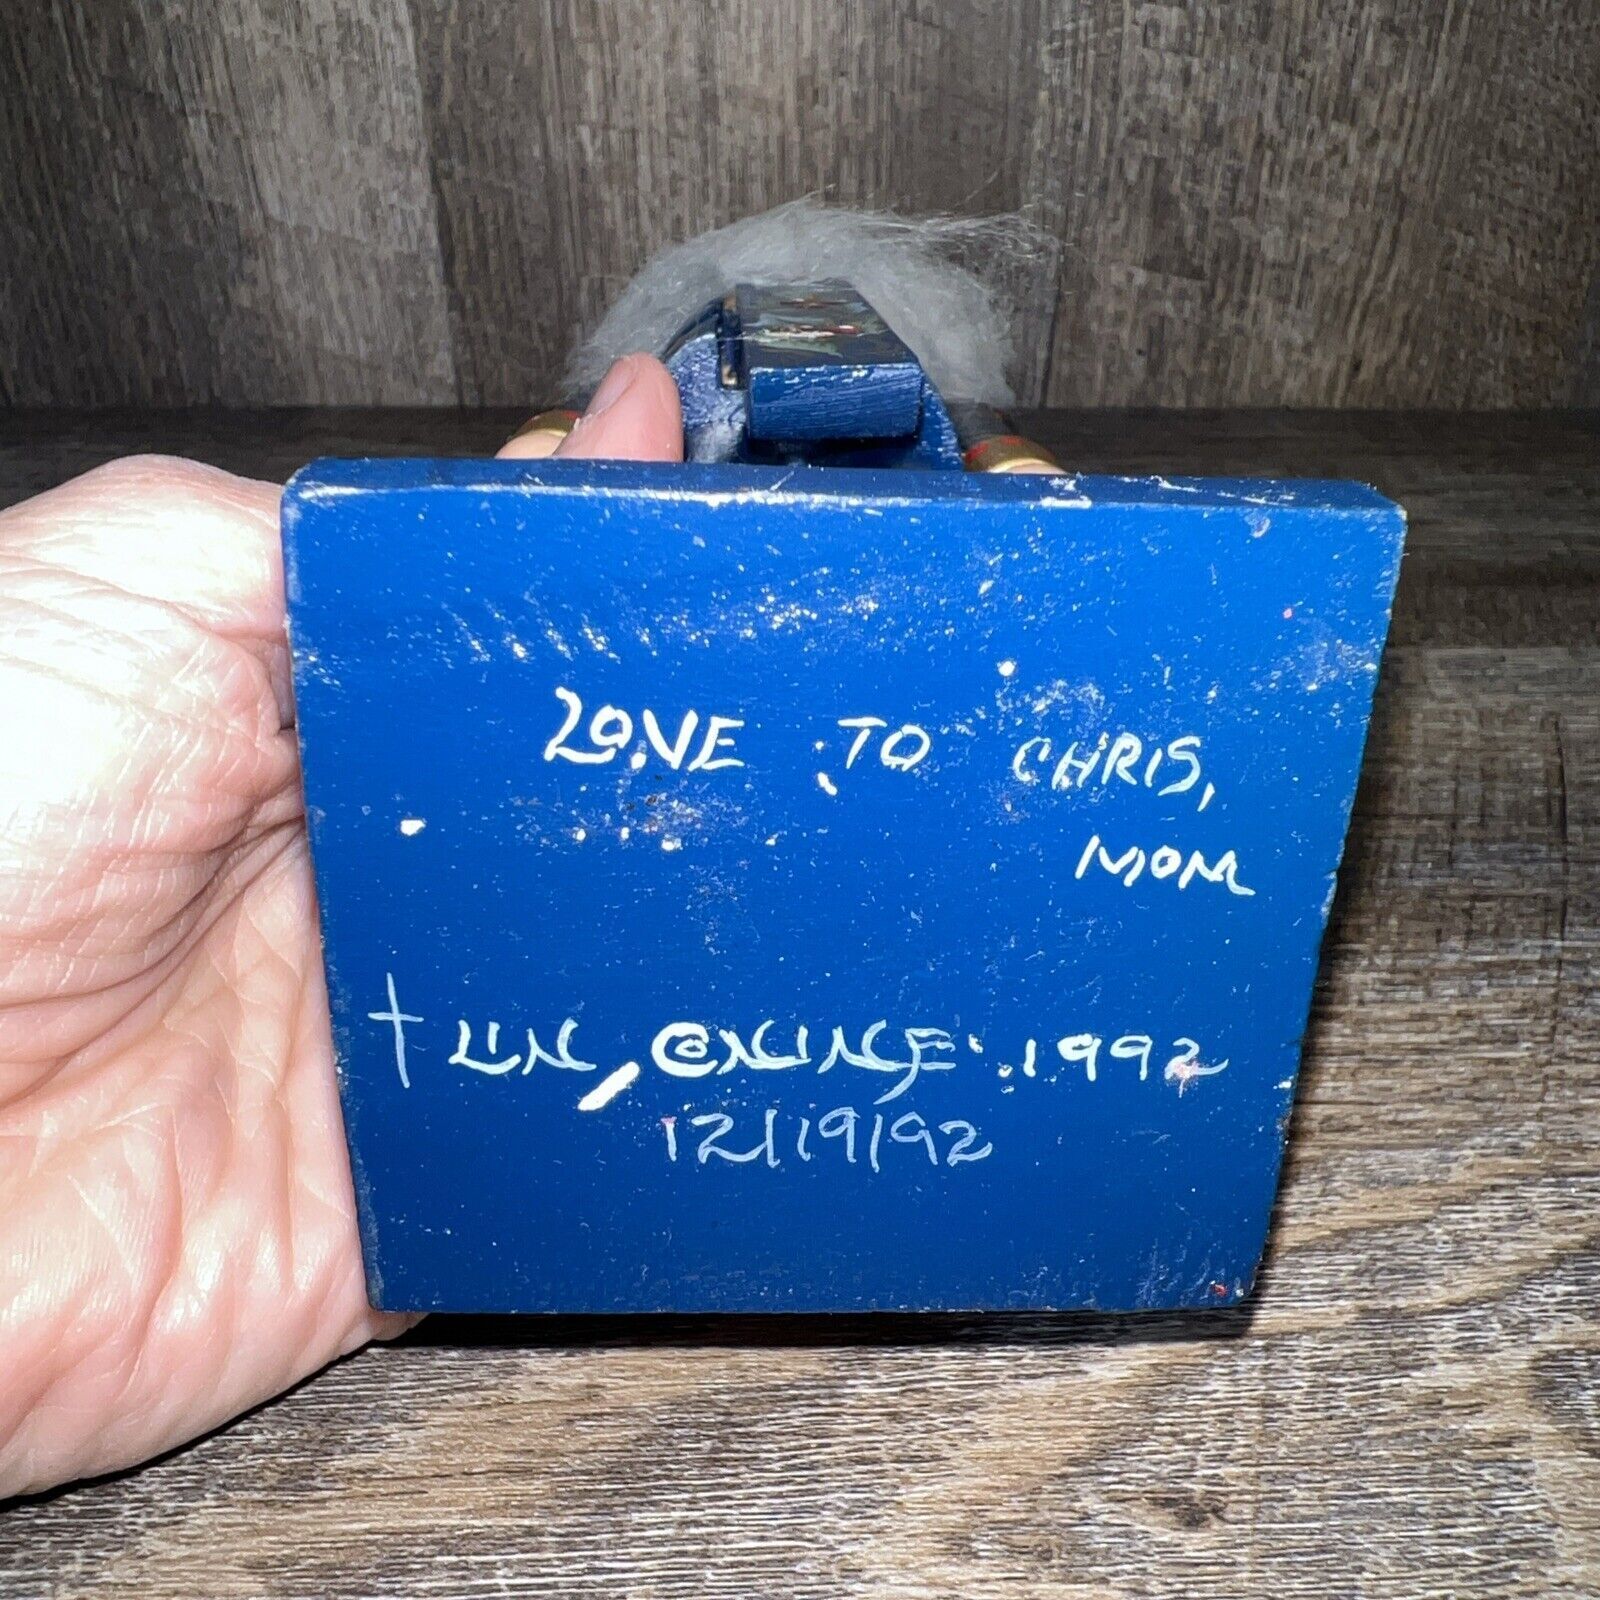 LOVE TO CHRIS,
MOM
LIN 1992
12/19/92